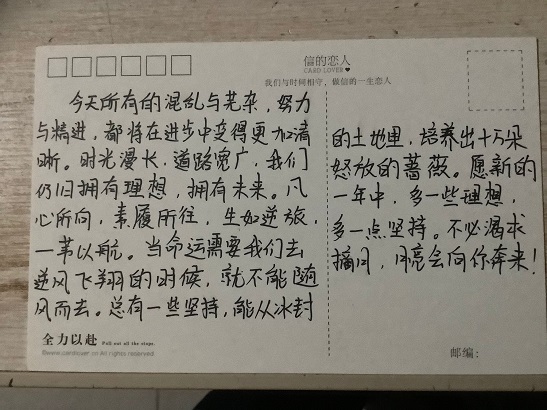 信的恋人
CARD LOVER
我们与时间相守,做信的一生恋人
今天所有的混乱与芜杂,努力
与精进,都将在进步中变得更加清
晰。时光漫长,道路宽广,我们
仍旧拥有理想,拥有未来。凡
心所向,素履所往,生如逆旅,
一苇以航。当命运需要我们去
逆风飞翔的时候,就不能随
风而去。总有一些坚持,能从冰封
的土地里,培养出十万朵
怒放的蔷薇。愿新的
一年中,多一些理想,
多一点坚持。不必渴求
摘月,月亮会向你奔来!
全力以赴 Pull out all the stops.
All rights reserved
邮编: